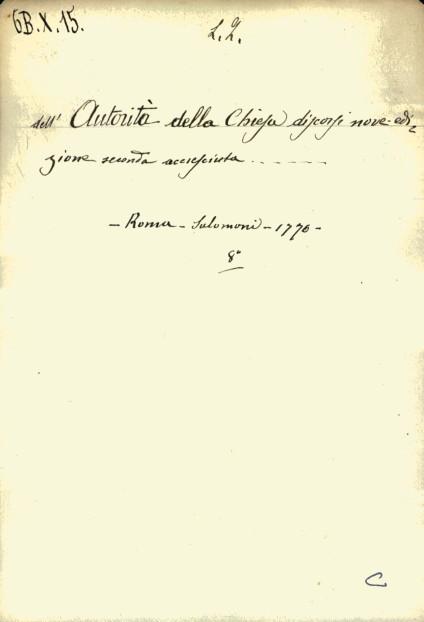 6B.X.15.
L. Z.
dell' Autorità della Chiesa discorsi nove. edi-
zione seconda accresciuta . - - - - -
- Roma - Salomoni - 1770 -
8°
C